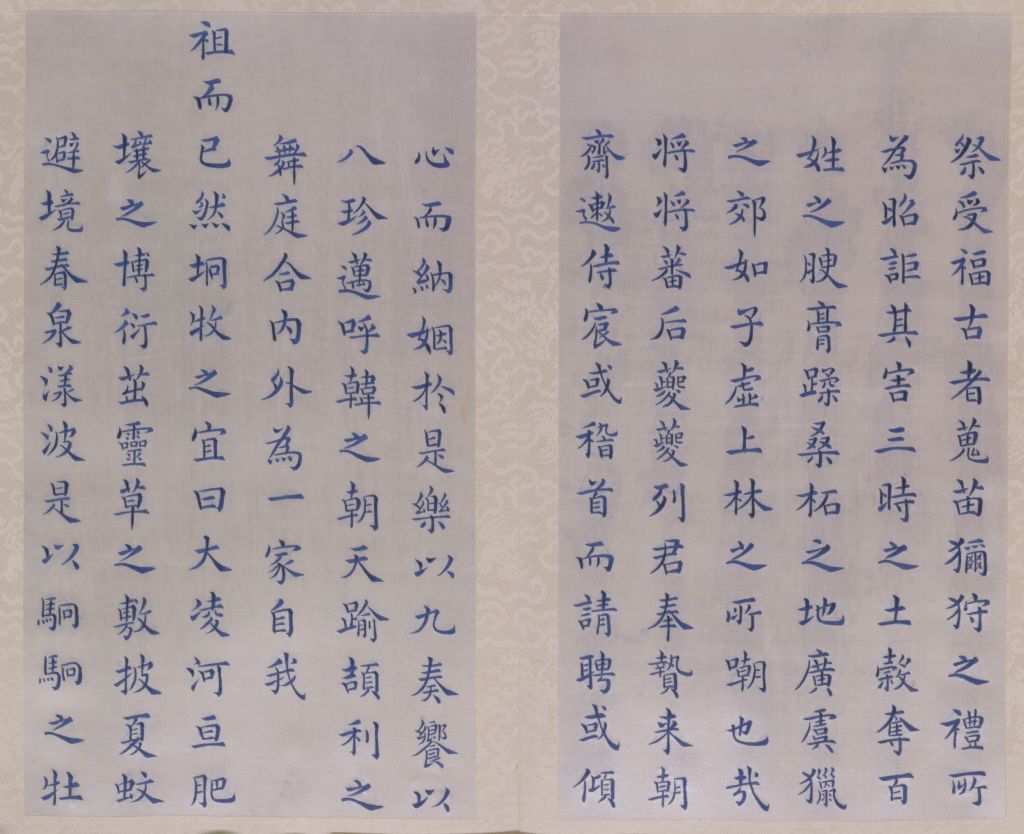 祭受福古者蒐苗獮狩之禮所
為昭詎其害三時之土穀奪百
姓之腴膏蹂桑柘之地廣虞獵
之郊如子虛上林之所嘲也㢤
将将蕃后夔夔列君奉贄来朝
齋遬侍宸或稽首而請聘或傾
心而納姻於是樂以九奏饗以
八珍邁呼韓之朝天踰頡利之
舞庭合內外為一家自我
祖而已然坰牧之宜曰大凌河亘肥
壤之博衍茁靈草之敷披夏蚊
避境春泉漾波是以駉駉之牡